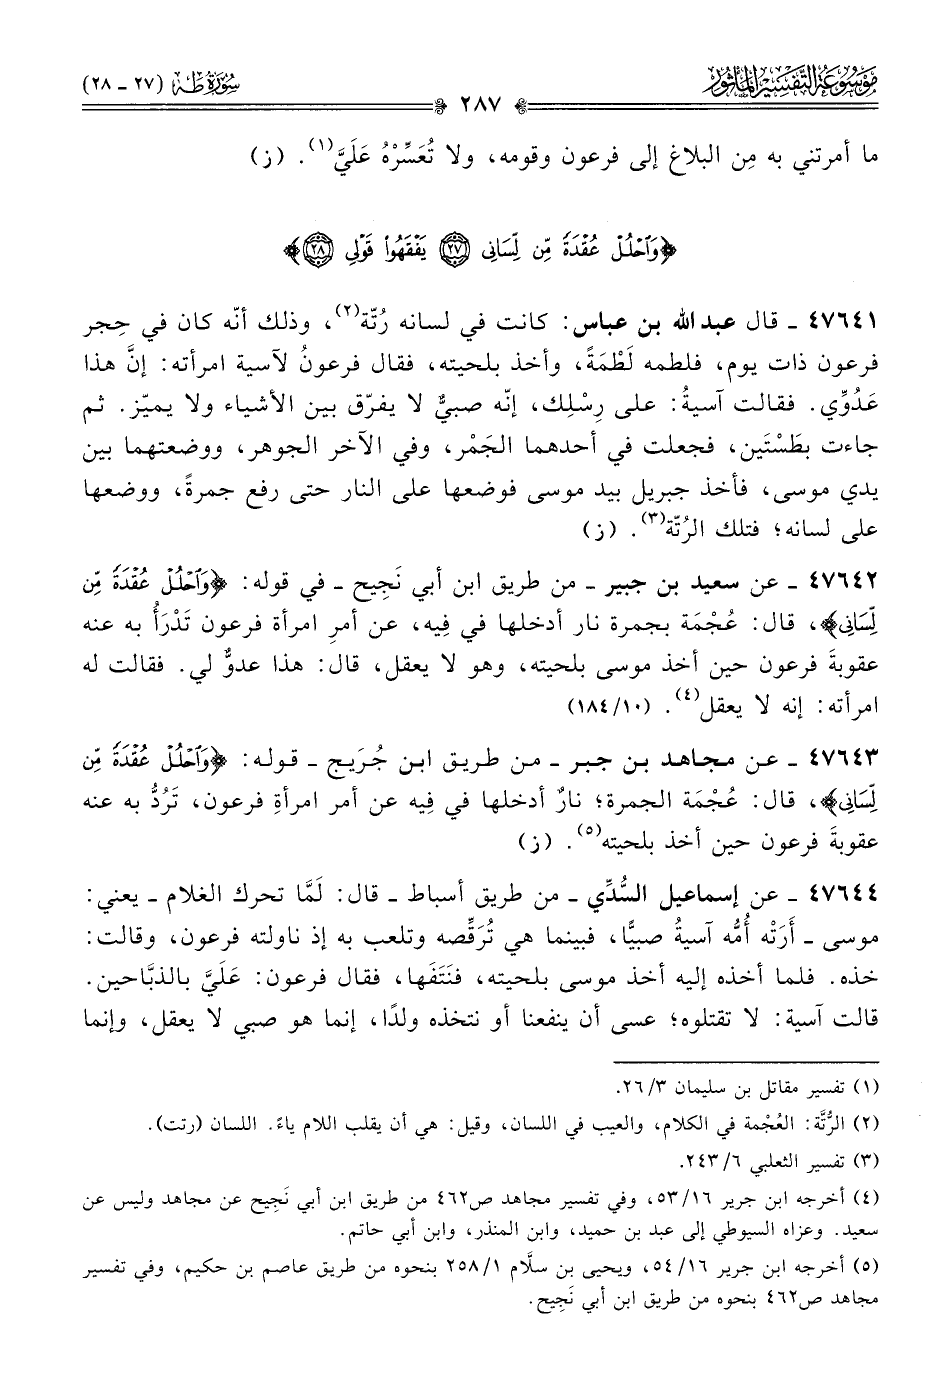 مَوْسُوعَة التَّفْسِير المَأْثُور
سُورَة طه (٢٧ - ٢٨)
٢٨٧
ما أمرتني به مِن البلاغ إلى فرعون وقومه، ولا تُعَسِّرْهُ عَلَيَّ(١). (ز)
﴿وَٱحْلُلْ عُقْدَةً مِّن لِّسَانِى ٢٧ يَفْقَهُواْ قَوْلِى ٢٨﴾
٤٧٦٤١ ـ قال عبد الله بن عباس: كانت في لسانه رُتّة(٢)، وذلك أنّه كان في حِجر
فرعون ذات يوم، فلطمه لَطْمَةً، وأخذ بلحيته، فقال فرعونُ لآسية امرأته: إنَّ هذا
عَدُوِّي. فقالت آسيةُ: على رِسْلِك، إنّه صبيٌّ لا يفرّق بين الأشياء ولا يميّز. ثم
جاءت بطَسْتَين، فجعلت في أحدهما الجَمْر، وفي الآخر الجوهر، ووضعتهما بين
يدي موسى، فأخذ جبريل بيد موسى فوضعها على النار حتى رفع جمرةً، ووضعها
على لسانه؛ فتلك الرُتّة(٣). (ز)
٤٧٦٤٢ ـ عن سعيد بن جبير ـ من طريق ابن أبي نَجِيح ـ في قوله: ﴿وَٱحْلُلْ عُقْدَةً مِّن
لِّسَانِى﴾، قال: عُجْمَة بجمرة نار أدخلها في فِيه، عن أمرِ امرأة فرعون تَدْرَأُ به عنه
عقوبةَ فرعون حين أخذ موسى بلحيته، وهو لا يعقل، قال: هذا عدوٌّ لي. فقالت له
امرأته: إنه لا يعقل(٤). (١٠/١٨٤)
٤٧٦٤٣ ـ عن مجاهد بن جبر ـ من طريق ابن جُرَيج ـ قوله: ﴿وَٱحْلُلْ عُقْدَةً مِّن
لِّسَانِى﴾، قال: عُجْمَة الجمرة؛ نارٌ أدخلها في فِيه عن أمر امرأةِ فرعون، تَرُدُّ به عنه
عقوبةَ فرعون حين أخذ بلحيته(٥). (ز)
٤٧٦٤٤ ـ عن إسماعيل السُّدِّي ـ من طريق أسباط ـ قال: لَمَّا تحرك الغلام ـ يعني:
موسى ـ أَرَتْه أُمُّه آسيةُ صبيًّا، فبينما هي تُرَقِّصه وتلعب به إذ ناولته فرعون، وقالت:
خذه. فلما أخذه إليه أخذ موسى بلحيته، فنَتَفَها، فقال فرعون: عَلَيَّ بالذبَّاحين.
قالت آسية: لا تقتلوه؛ عسى أن ينفعنا أو نتخذه ولدًا، إنما هو صبي لا يعقل، وإنما
(١) تفسير مقاتل بن سليمان ٣/٢٦.
(٢) الرُّتَّة: العُجْمة في الكلام، والعيب في اللسان، وقيل: هي أن يقلب اللام ياءً. اللسان (رتت).
(٣) تفسير الثعلبي ٦/٢٤٣.
(٤) أخرجه ابن جرير ١٦/٥٣، وفي تفسير مجاهد ص٤٦٢ من طريق ابن أبي نَجيح عن مجاهد وليس عن
سعيد. وعزاه السيوطي إلى عبد بن حميد، وابن المنذر، وابن أبي حاتم.
(٥) أخرجه ابن جرير ١٦/٥٤، ويحيى بن سلَّام ١/٢٥٨ بنحوه من طريق عاصم بن حكيم، وفي تفسير
مجاهد ص٤٦٢ بنحوه من طريق ابن أبي نَجِيح.